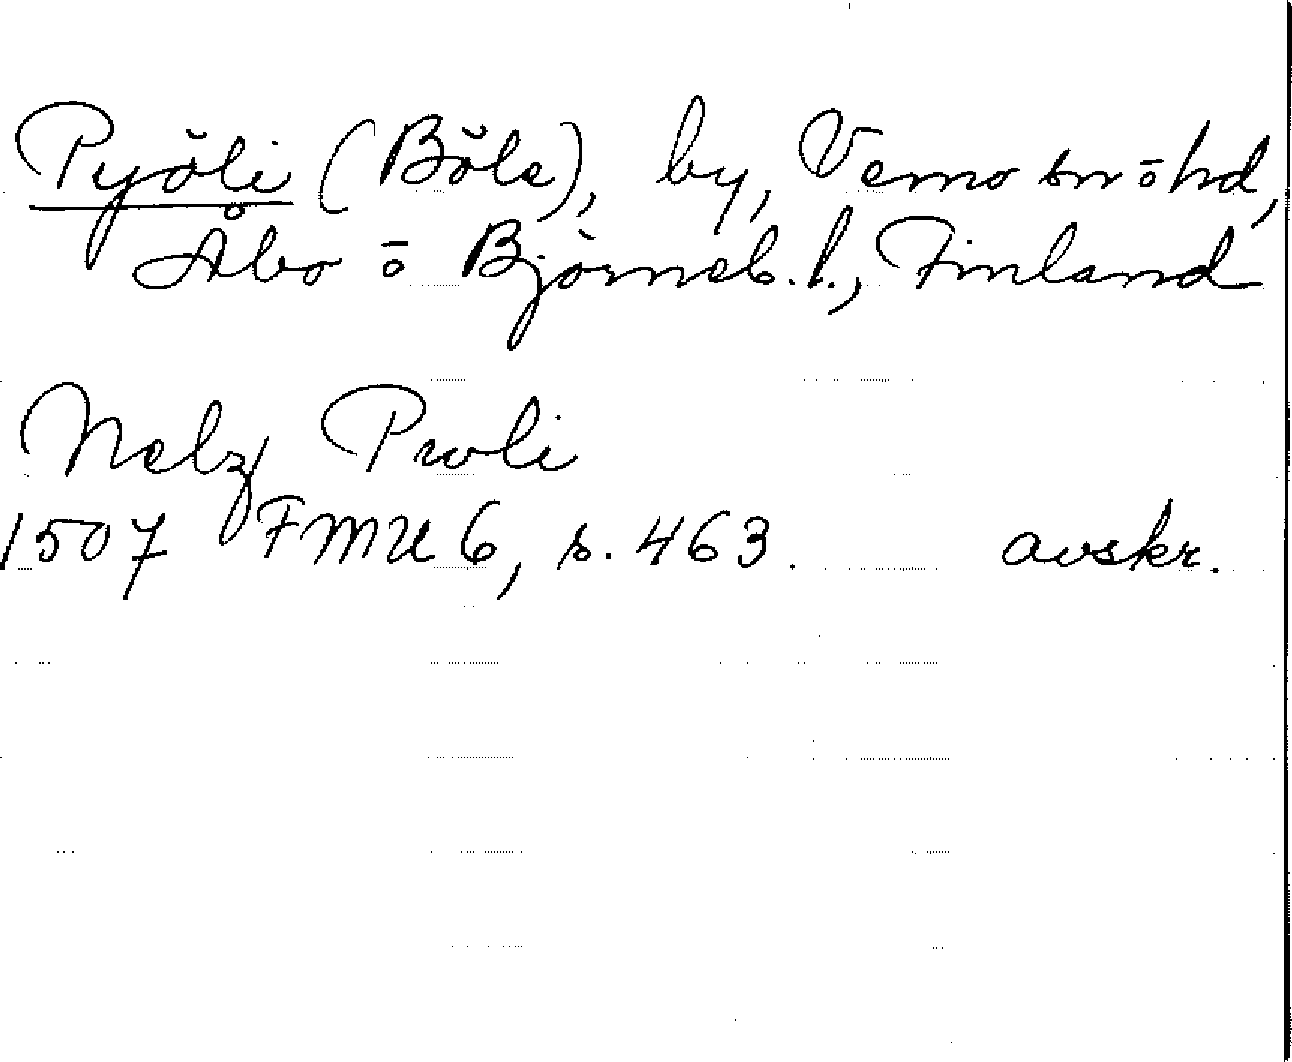 Pyöli (Böle), by, Vemo sn o hd,
Åbo o Björneb. l., Finland
Nelz Pwli
1507 FMU 6, s. 463. avskr.